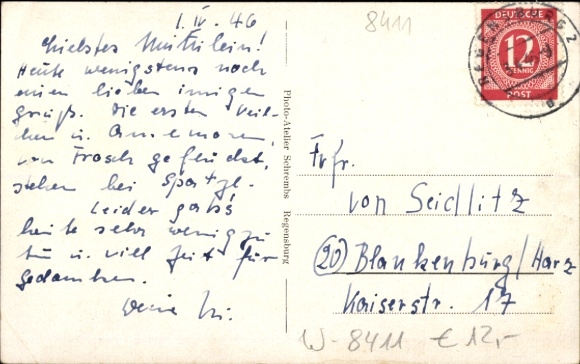 1. IV. 46
Liebstes Mütterlein!
Heute wenigstens noch
einen lieben innigen
Gruß. Die ersten Veil-
chen u. Anemonen,
von Frosch gepflückt,
stehen bei
Leider gab's
heute sehr wenig zu
tun u. viel Zeit für
Gedanken.
Deine
Photo-Atelier Schrembs Regensburg
8411
DEUTSCHE
12
PFENNIG
POST
REGENSBURG 2
Frfr.
von Seidlitz
(20) Blankenburg/Harz
Kaiserstr. 17
W-8411 € 12,-